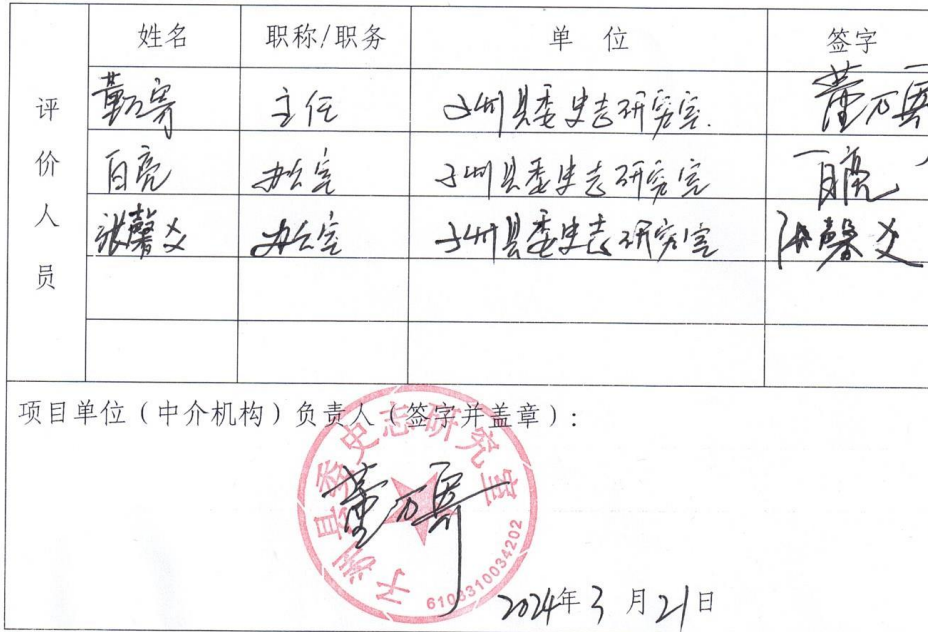 姓名 职称/职务 单 位 签字
评价人员
主任 子洲县委史志研究室
白亮 办公室 子洲县委史志研究室 白亮
张馨文 办公室 子洲县委史志研究室 张馨文
项目单位（中介机构）负责人（签字并盖章）：
子洲县委史志研究室
6103310034202
2024年3月21日